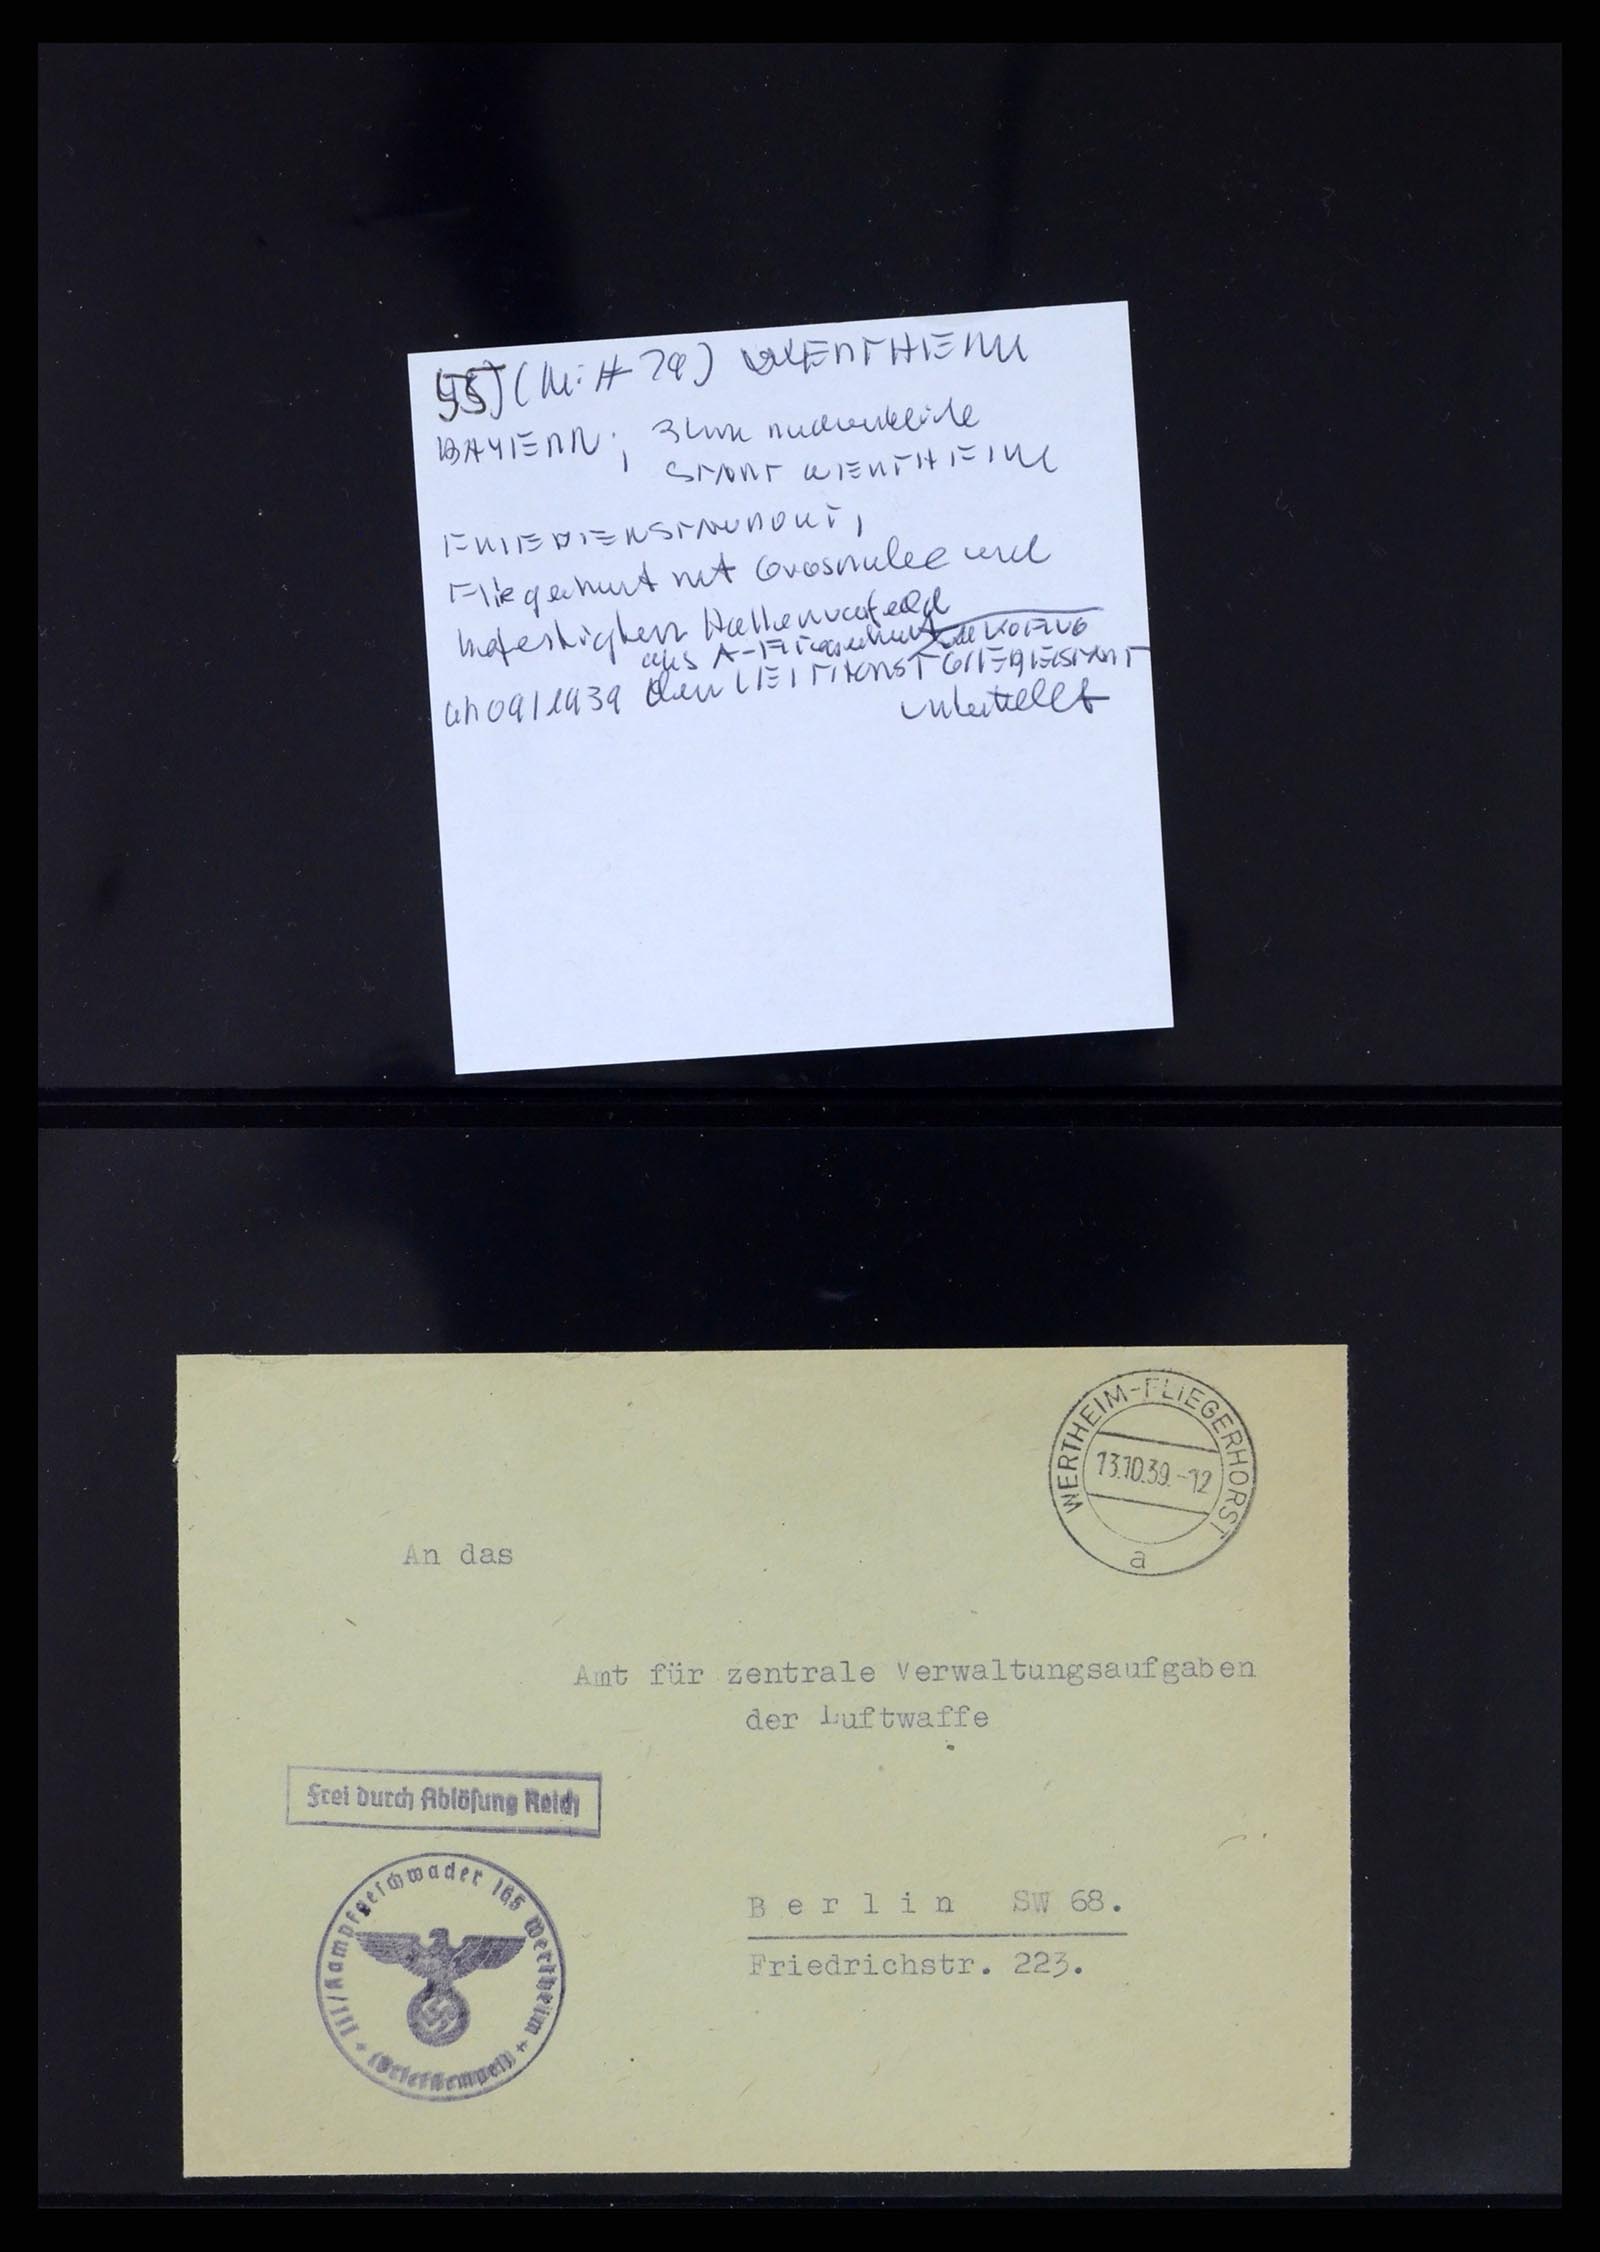 WERTHEIM
BAYERN; 3 km
STADT WERTHEIM
FRIEDENSTANDORT,
Fliegerhorst mit Grasnarbe und
befestigtem Hallenvorfeld
als A-Fliegerhorst
ab 09/1939 dem LEITHORST GIEBELSTADT
unterstellt
WERTHEIM-FLIEGERHORST
13.10.39.-12
a
An das
Amt für zentrale Verwaltungsaufgaben
der Luftwaffe
Frei durch Ablösung Reich
III/Kampfgeschwader 165 Wertheim
(Briefstempel)
Berlin SW 68.
Friedrichstr. 223.